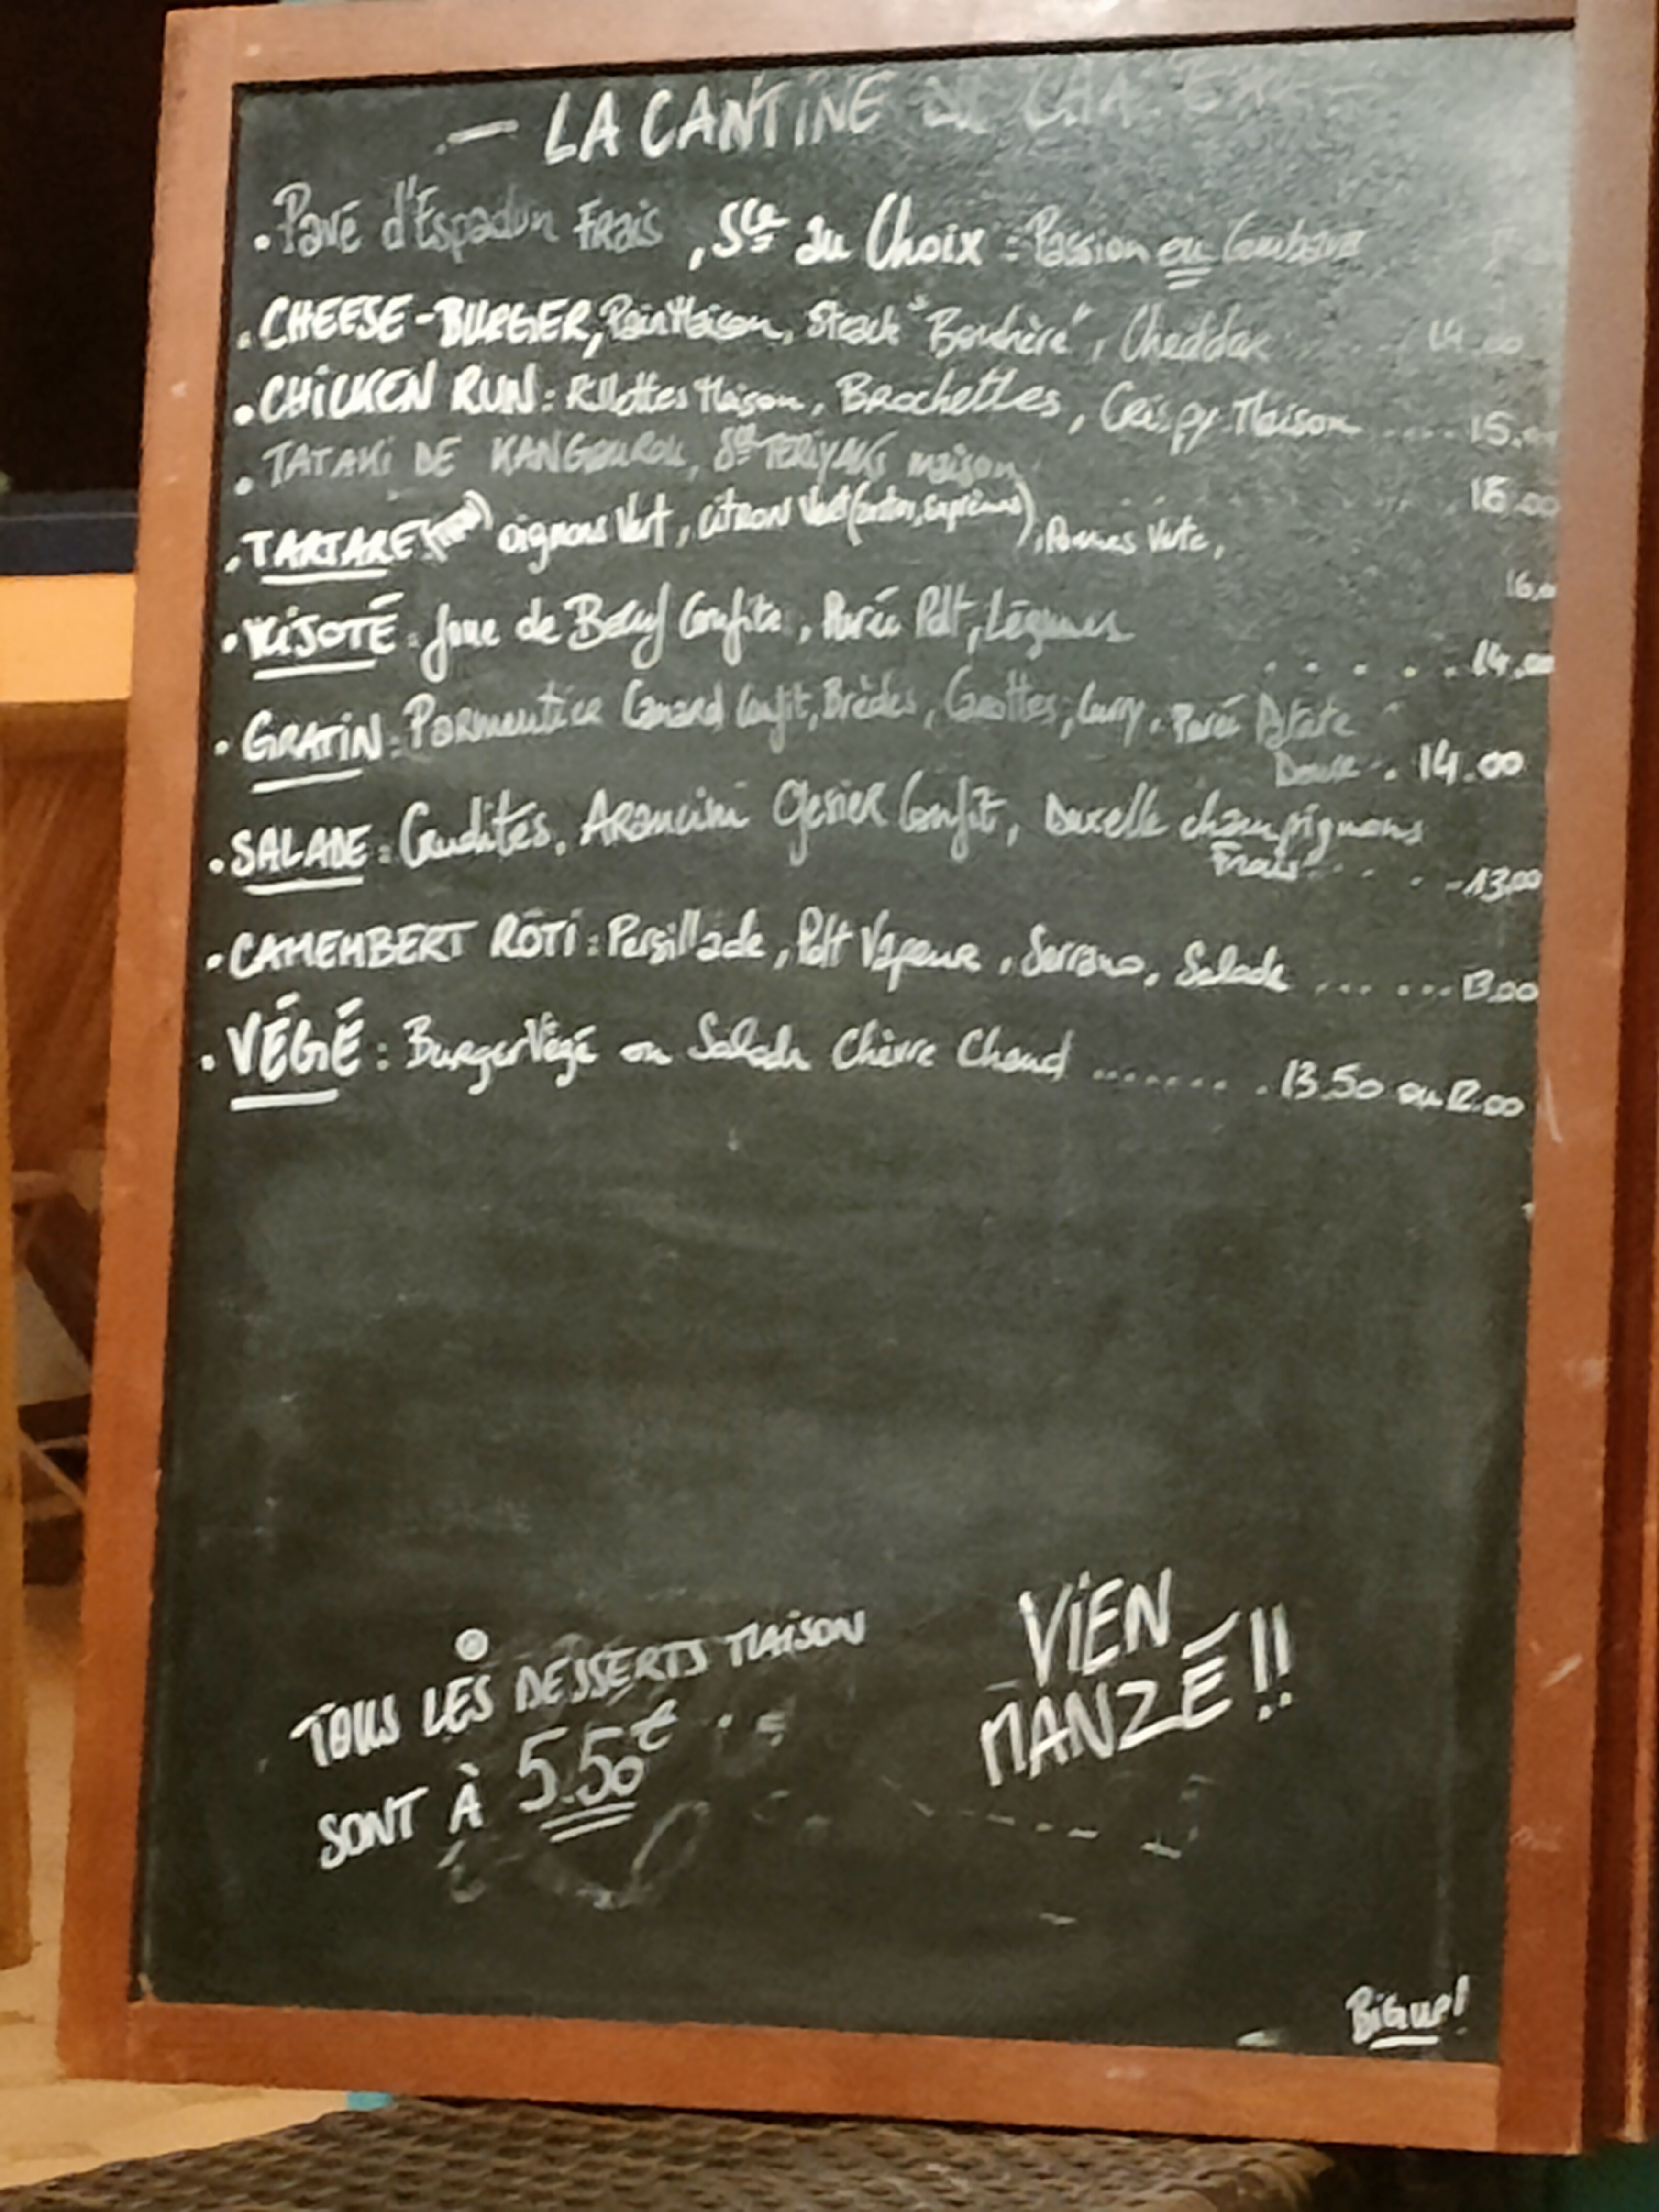 — LA CANTINE DE
. Pavé d'Espadon Frais, Sce au Choix : Passion ou Combava
. CHEESE-BURGER, Pain Maison, Steack "Bouchère", Cheddar 14.00
. CHiCKEN RUN : Rillettes Maison, Brochettes, Crispy Maison .... 15.
. TATAKi DE KANGOUROU, Sce TERiYAKi maison 16.00
. TARTARE oignons Vert, citron Vert (zestes, suprêmes), Pommes Verte, 16.0
. MiJOTÉ : Joue de Boeuf Confite, Purée Pdt, Légumes ...... 14.00
. GRATiN : Parmentier Canard Confit, Brèdes, Carottes, Curry, Purée Patate
Douce . 14.00
. SALADE : Crudités, Arancini Gésier Confit, Duxelle champignons
Frais . . . - 13.00
. CAMEMBERT RÔTi : Persillade, Pdt Vapeur, Serrano, Salade ... .... 13.00
. VÉGÉ : Burger Végé ou Salade Chèvre Chaud ....... . 13.50 ou 12.00
TOUS LES DESSERTS MAiSON
SONT À 5.50€
ViEN
MANZÉ !!
BiGup!